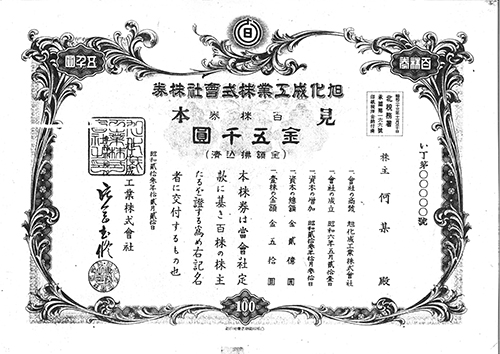 百株券
五千圓
旭化成工業株式會社株券
見本
百株券
金五千圓
(金額拂込濟)
北税務署
い丁第〇〇〇〇〇號
株主 何某 殿
一、會社の商號 旭化成工業株式會社
一、會社の成立 昭和六年五月貳拾壹日
一、資本の増加 昭和貳拾參年拾月參拾日
一、資本の總額 金貳億圓
一、壹株の金額 金五拾圓
本株券は當會社定
款に基き百株の株主
たるを證する爲め右記名
者に交付するもの也
昭和貳拾參年拾貳月貳拾日
工業株式會社
100